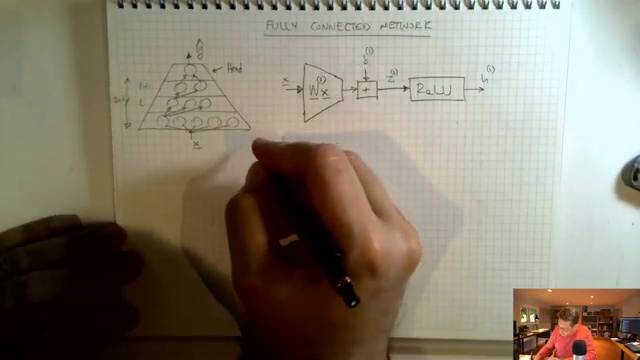 FULLY CONNECTED NETWORK
ŷ
Head
L
x
x
W⁽¹⁾x
b⁽¹⁾
+
z⁽¹⁾
ReLU
h⁽¹⁾